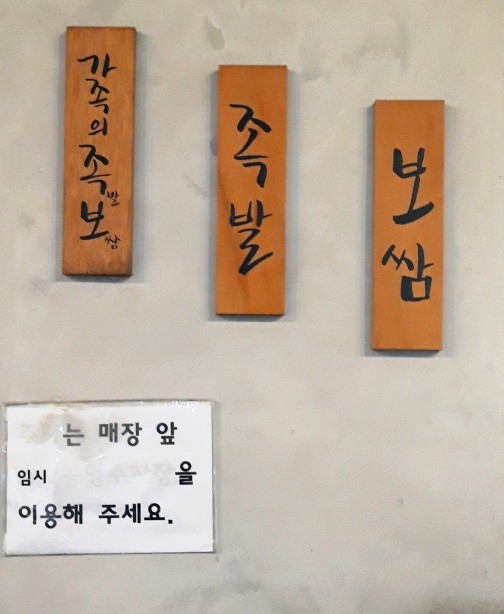 가족의 족발 보쌈
족발
보쌈
는 매장 앞
임시 을
이용해 주세요.